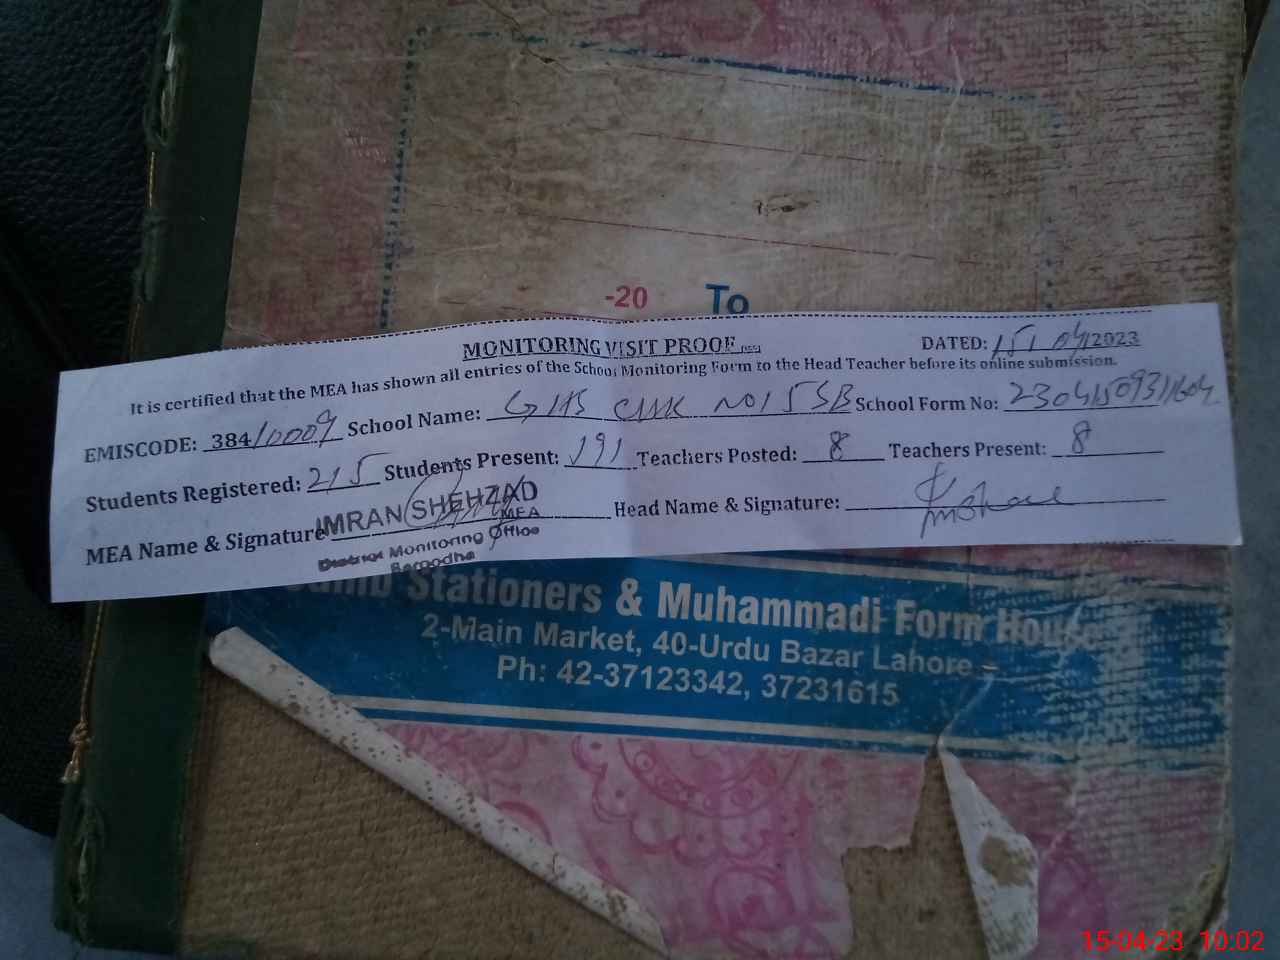 -20 To
MONITORING VISIT PROOF
DATED: 15/04/2023
It is certified that the MEA has shown all entries of the School Monitoring Form to the Head Teacher before its online submission.
EMISCODE: 384/0009 School Name: GHS CHK NO 15 SB School Form No: 23041509311604
Students Registered: 215 Students Present: 191 Teachers Posted: 8 Teachers Present: 8
MEA Name & Signature IMRAN SHEHZAD Head Name & Signature:
MEA
District Monitoring Office
Sargodha
Stationers & Muhammadi Form House
2-Main Market, 40-Urdu Bazar Lahore
Ph: 42-37123342, 37231615
15-04-23 10:02